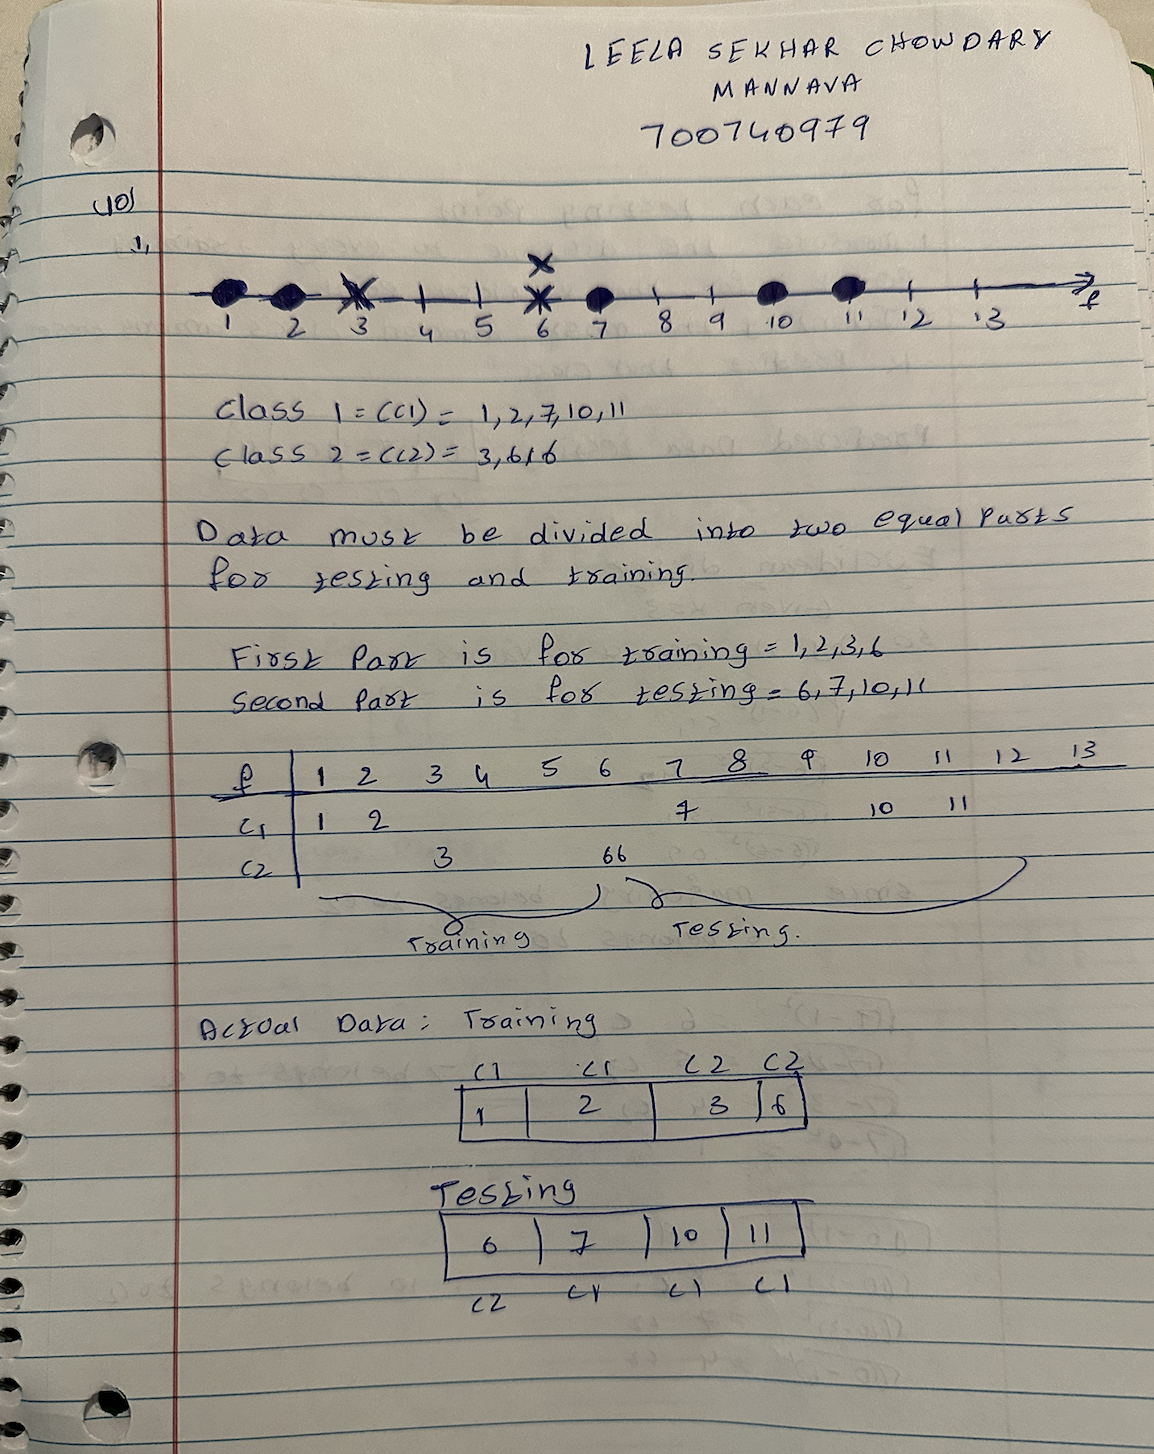 LEELA SEKHAR CHOWDARY
MANNAVA
700740979
10)
1,
X
1 2 3 4 5 6 7 8 9 10 11 12 13 f
Class 1 = (C1) = 1, 2, 7, 10, 11
Class 2 = (C2) = 3, 6, 6
Data must be divided into two equal parts
for testing and training.
First Part is for training = 1, 2, 3, 6
Second Part is for testing = 6, 7, 10, 11
f 1 2 3 4 5 6 7 8 9 10 11 12 13
C1 1 2 7 10 11
C2 3 66
Training Testing.
Actual Data: Training
C1 C1 C2 C2
1 2 3 6
Testing
6 7 10 11
C2 C1 C1 C1